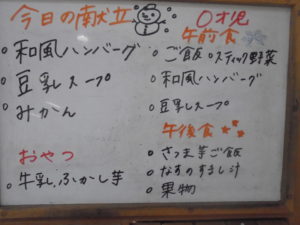 今日の献立
・和風ハンバーグ
・豆乳スープ
・みかん
おやつ
・牛乳、ふかし芋
0才児
午前食
・ご飯 ・スティック野菜
・和風ハンバーグ
・豆乳スープ
午後食
・さつま芋ご飯
・なすのすまし汁
・果物